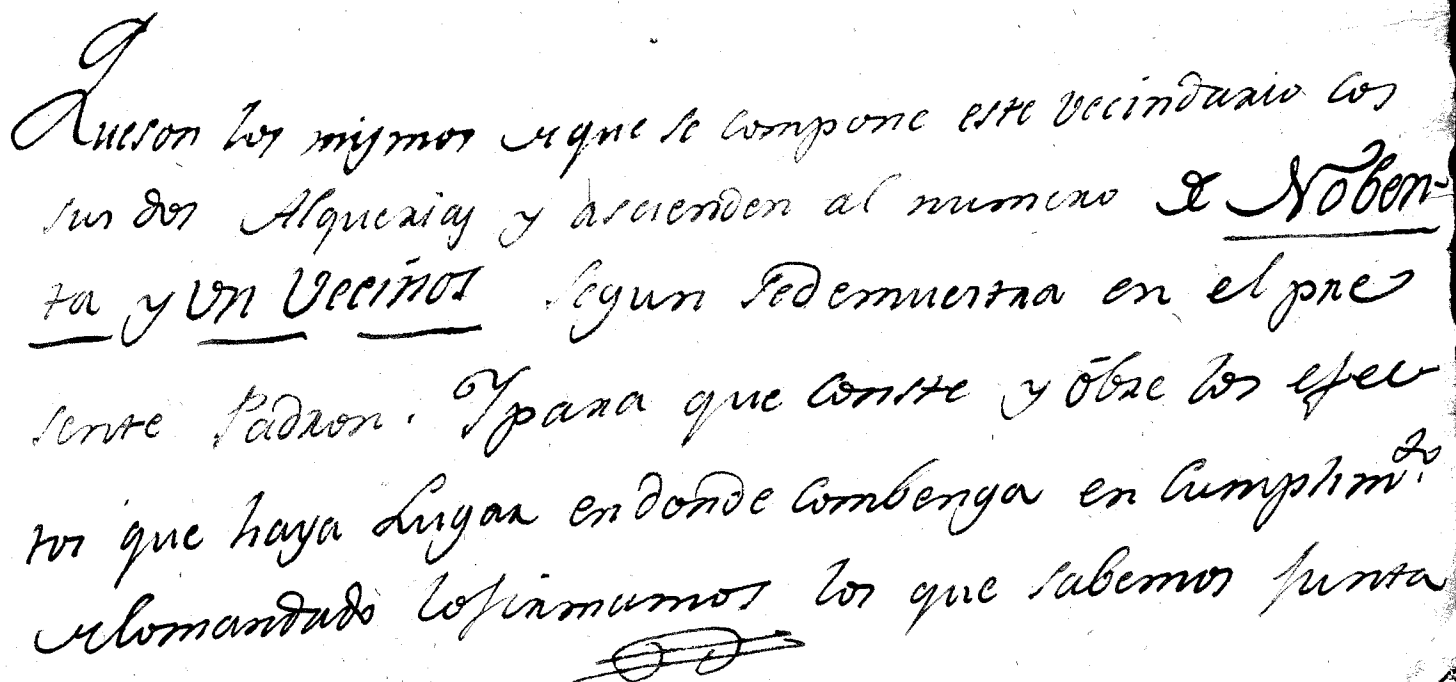 Queson los mismos de que se compone este vecindario cos
sus dos Alquerias y ascienden al numero de Noben-
ta y un Vecinos segun sedemuestra en el pre
sente Padron. Ypara que conste y obre los efec
tos que haya Lugar endonde combenga en cumplim.to
delomandado lofirmamos los que sabemos junta